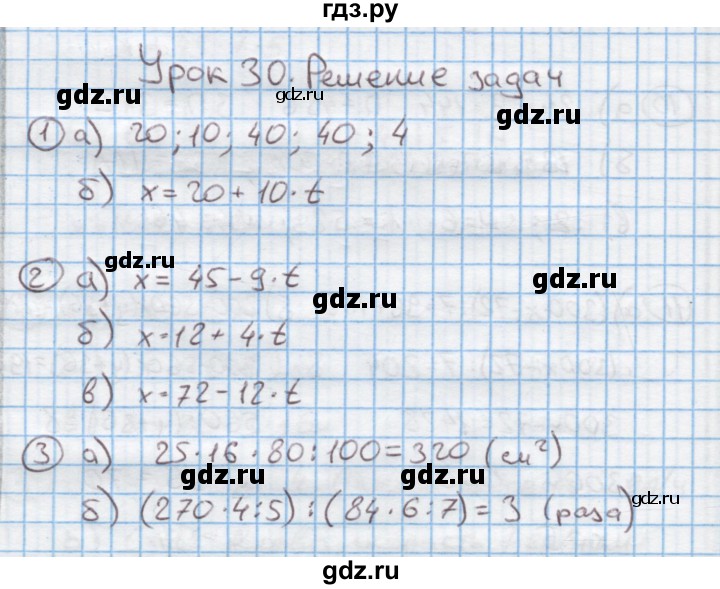 гдз.ру
Урок 30. Решение задач
gdz.ru
gdz.ru
gdz.ru
① а) 20; 10; 40; 40; 4
б) x = 20 + 10 · t
gdz.ru
② а) x = 45 - 9 · t
gdz.ru
gdz.ru
б) x = 12 + 4 · t
в) x = 72 - 12 · t
③ а) 25 · 16 · 80 : 100 = 320 (см²)
gdz.ru
gdz.ru
б) (270 · 4 : 5) : (84 · 6 : 7) = 3 (раза)
gdz.ru
gdz.ru